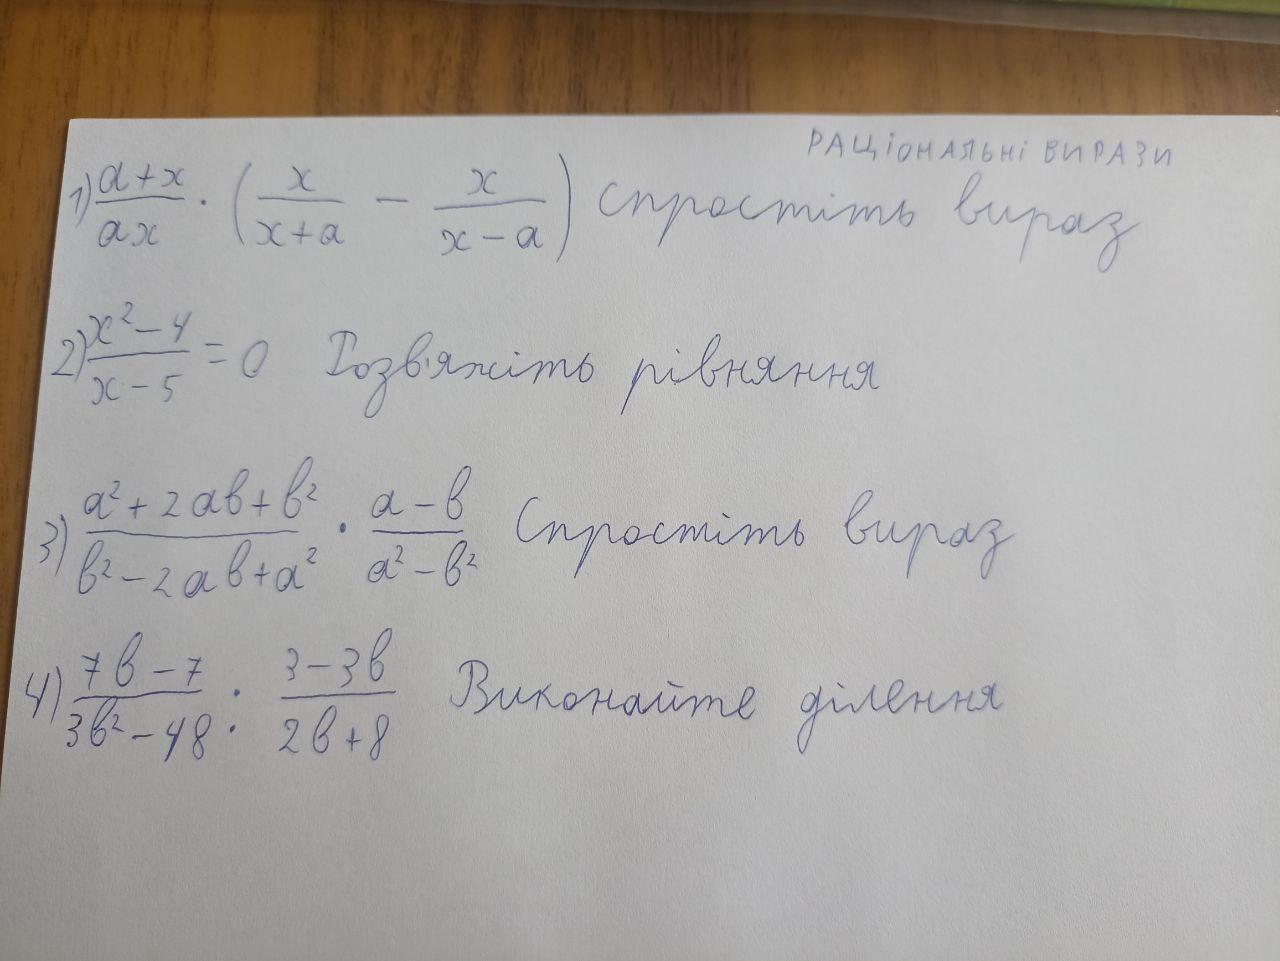 РАЦІОНАЛЬНІ ВИРАЗИ
1) (a+x)/(ax) · (x/(x+a) − x/(x−a)) спростіть вираз
2) (x²−4)/(x−5) = 0 Розв'яжіть рівняння
3) (a²+2ab+b²)/(b²−2ab+a²) · (a−b)/(a²−b²) Спростіть вираз
4) (7b−7)/(3b²−48) : (3−3b)/(2b+8) Виконайте ділення